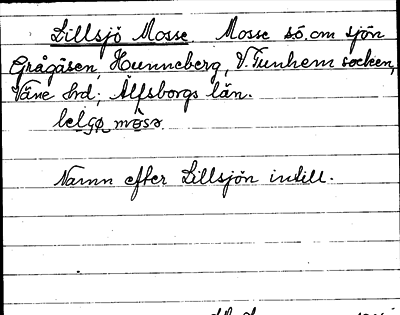 Lillsjö Mosse Mosse sö. om sjön
Grågåsen, Hunneberg, V. Tunhem socken,
Väne hrd; Älfsborgs län.
Namn efter Lillsjön intill.